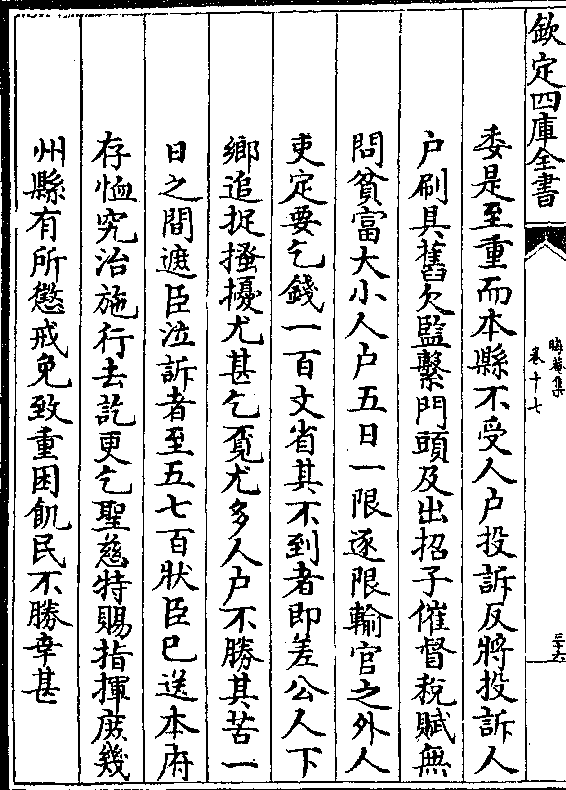 欽定四庫全書
晦菴集
卷十七
三十六
委是至重而本縣不受人户投訴反將投訴人
户刷具舊欠監繫門頭及出招子催督税賦無
問貧富大小人户五日一限逐限輸官之外人
吏定要乞錢一百文省其不到者即差公人下
鄉追捉搔擾尤甚乞覔尤多人户不勝其苦一
日之間遮臣泣訴者至五七百狀臣已送本府
存恤究治施行去訖更乞聖慈特賜指揮庶幾
州縣有所懲戒免致重困飢民不勝幸甚